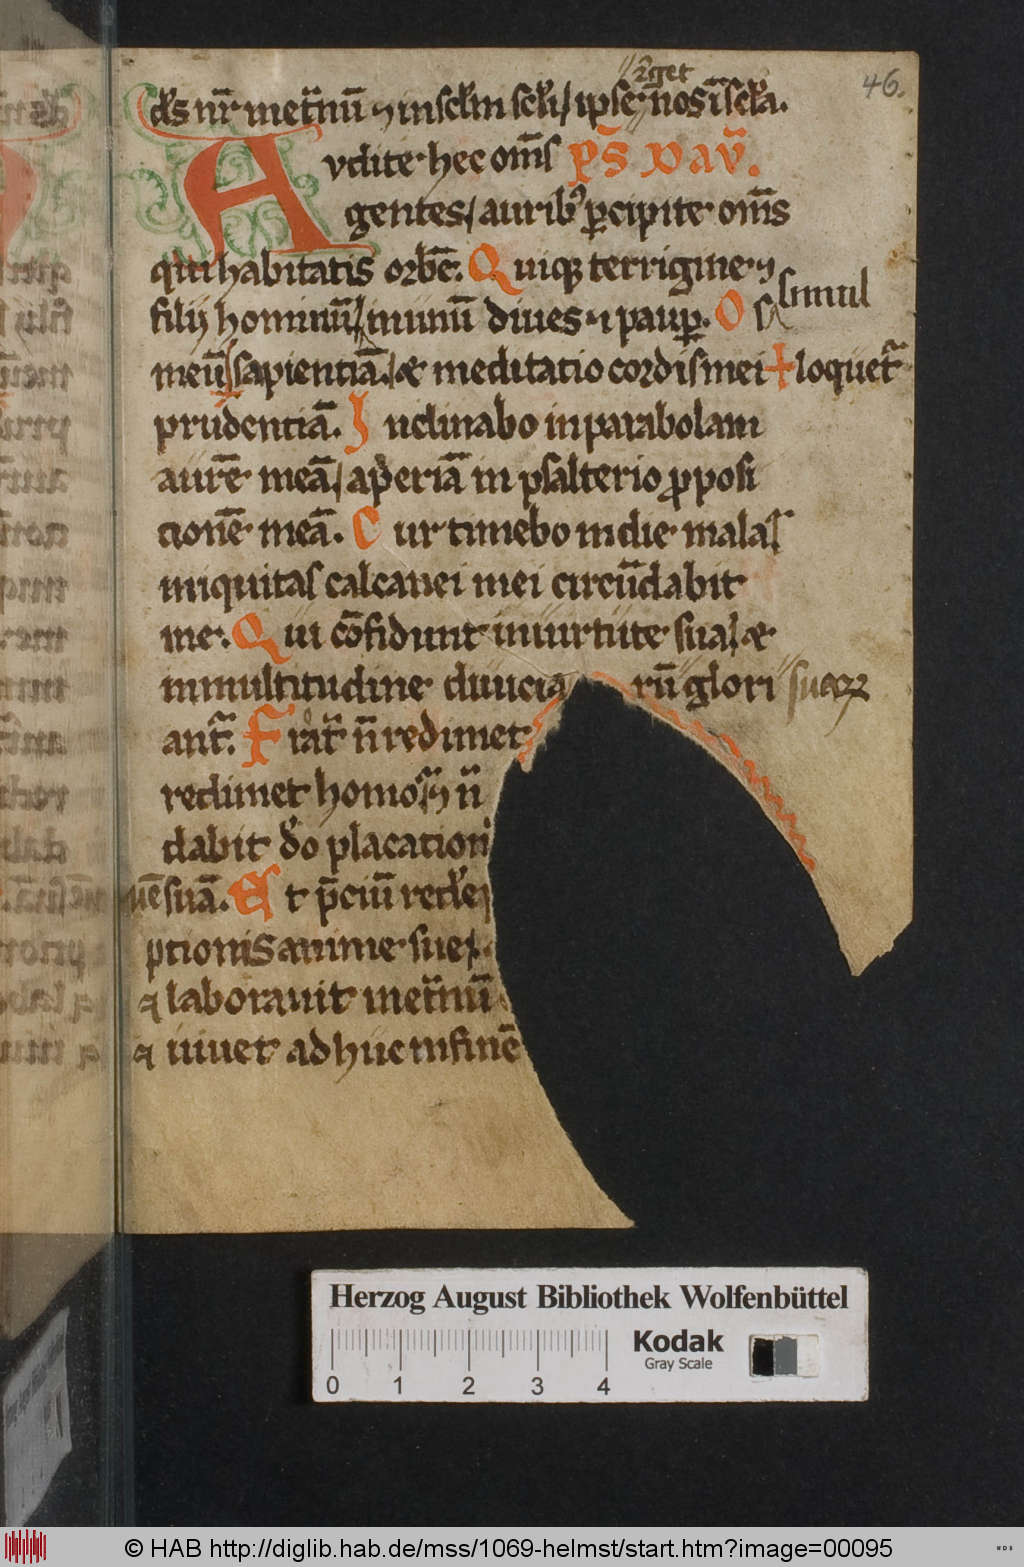 r̄get
46.
ds nr̄ inet̄nū ⁊ in sclm̄ scli / ipse r̄ nos ī scl̄a.
Audite hec om̄s ps dauͥ.
gentes / auribꝰ ꝑcipite om̄s
qui habitatis orbē. Quiqꝫ terrigine ⁊
filij hominū / inunū diues ⁊ paup̲. Os
simul
meū / sapientiā. / & meditatio cordis mei + loquet᷑
prudentiā. Inclinabo inparabolam
aurē meā / aperiā in psalterio ꝓposi
cionē meā. Cur timebo indie mala /
iniquitas calcanei mei circūdabit
me. Qui cōfidunt inuirtute sua / &
inmultitudine diuicia rū glori suarꝝ
ant᷑. Frat̄ n̄ redimet
redimet homo / n̄
dabit do placation
nē suā. Et p̄ciū rede
ptionis anime sue /
⁊ laborauit inet̄nū
⁊ uiuet adhuc infinē
Herzog August Bibliothek Wolfenbüttel
0 1 2 3 4
Kodak
Gray Scale
© HAB http://diglib.hab.de/mss/1069-helmst/start.htm?image=00095